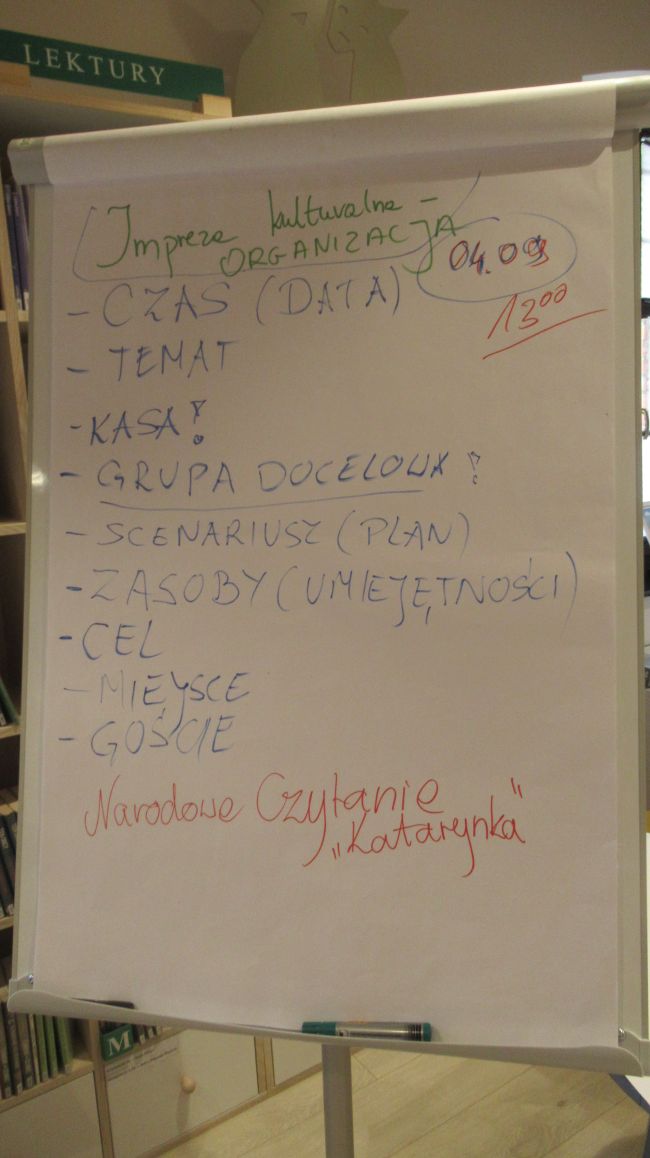 LEKTURY
Impreza kulturalna –
ORGANIZACJA
04.09
13⁰⁰
- CZAS (DATA)
- TEMAT
- KASA!
- GRUPA DOCELOWA!
- SCENARIUSZ (PLAN)
- ZASOBY (UMIEJĘTNOŚCI)
- CEL
- MIEJSCE
- GOŚCIE
Narodowe Czytanie
„Katarynka"
M